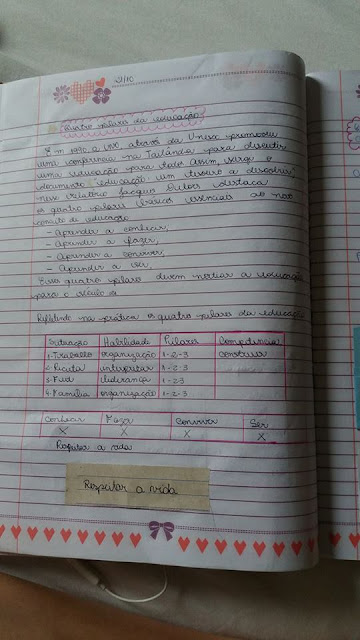 21/10
Quatro pilares da educação
Em 1990, a ONU através da Unesco promoveu
uma conferencia na Tailândia para discutir
uma educação para todos Assim, surge o
documento educação um tesouro a descobrir,
nesse relatório Jacques Delors destaca
os quatro pilares básicos essenciais ao novo
conceito de educação
- Aprender a conhecer;
- Aprender a fazer;
- Aprender a conviver;
- Aprender a ser;
Esses quatro pilares devem nortear a educação
para o século
Refletindo na prática os quatro pilares da educação
Situação Habilidade Pilares Competência
1-Trabalho organização 1-2-3 construir
2-Escuta interpretar 1-2-3
3- liderança 1-2-3
4-Família organização 1-2-3
Conhecer Fazer Conviver Ser
X X X X
Respeitar a vida
Respeitar a vida